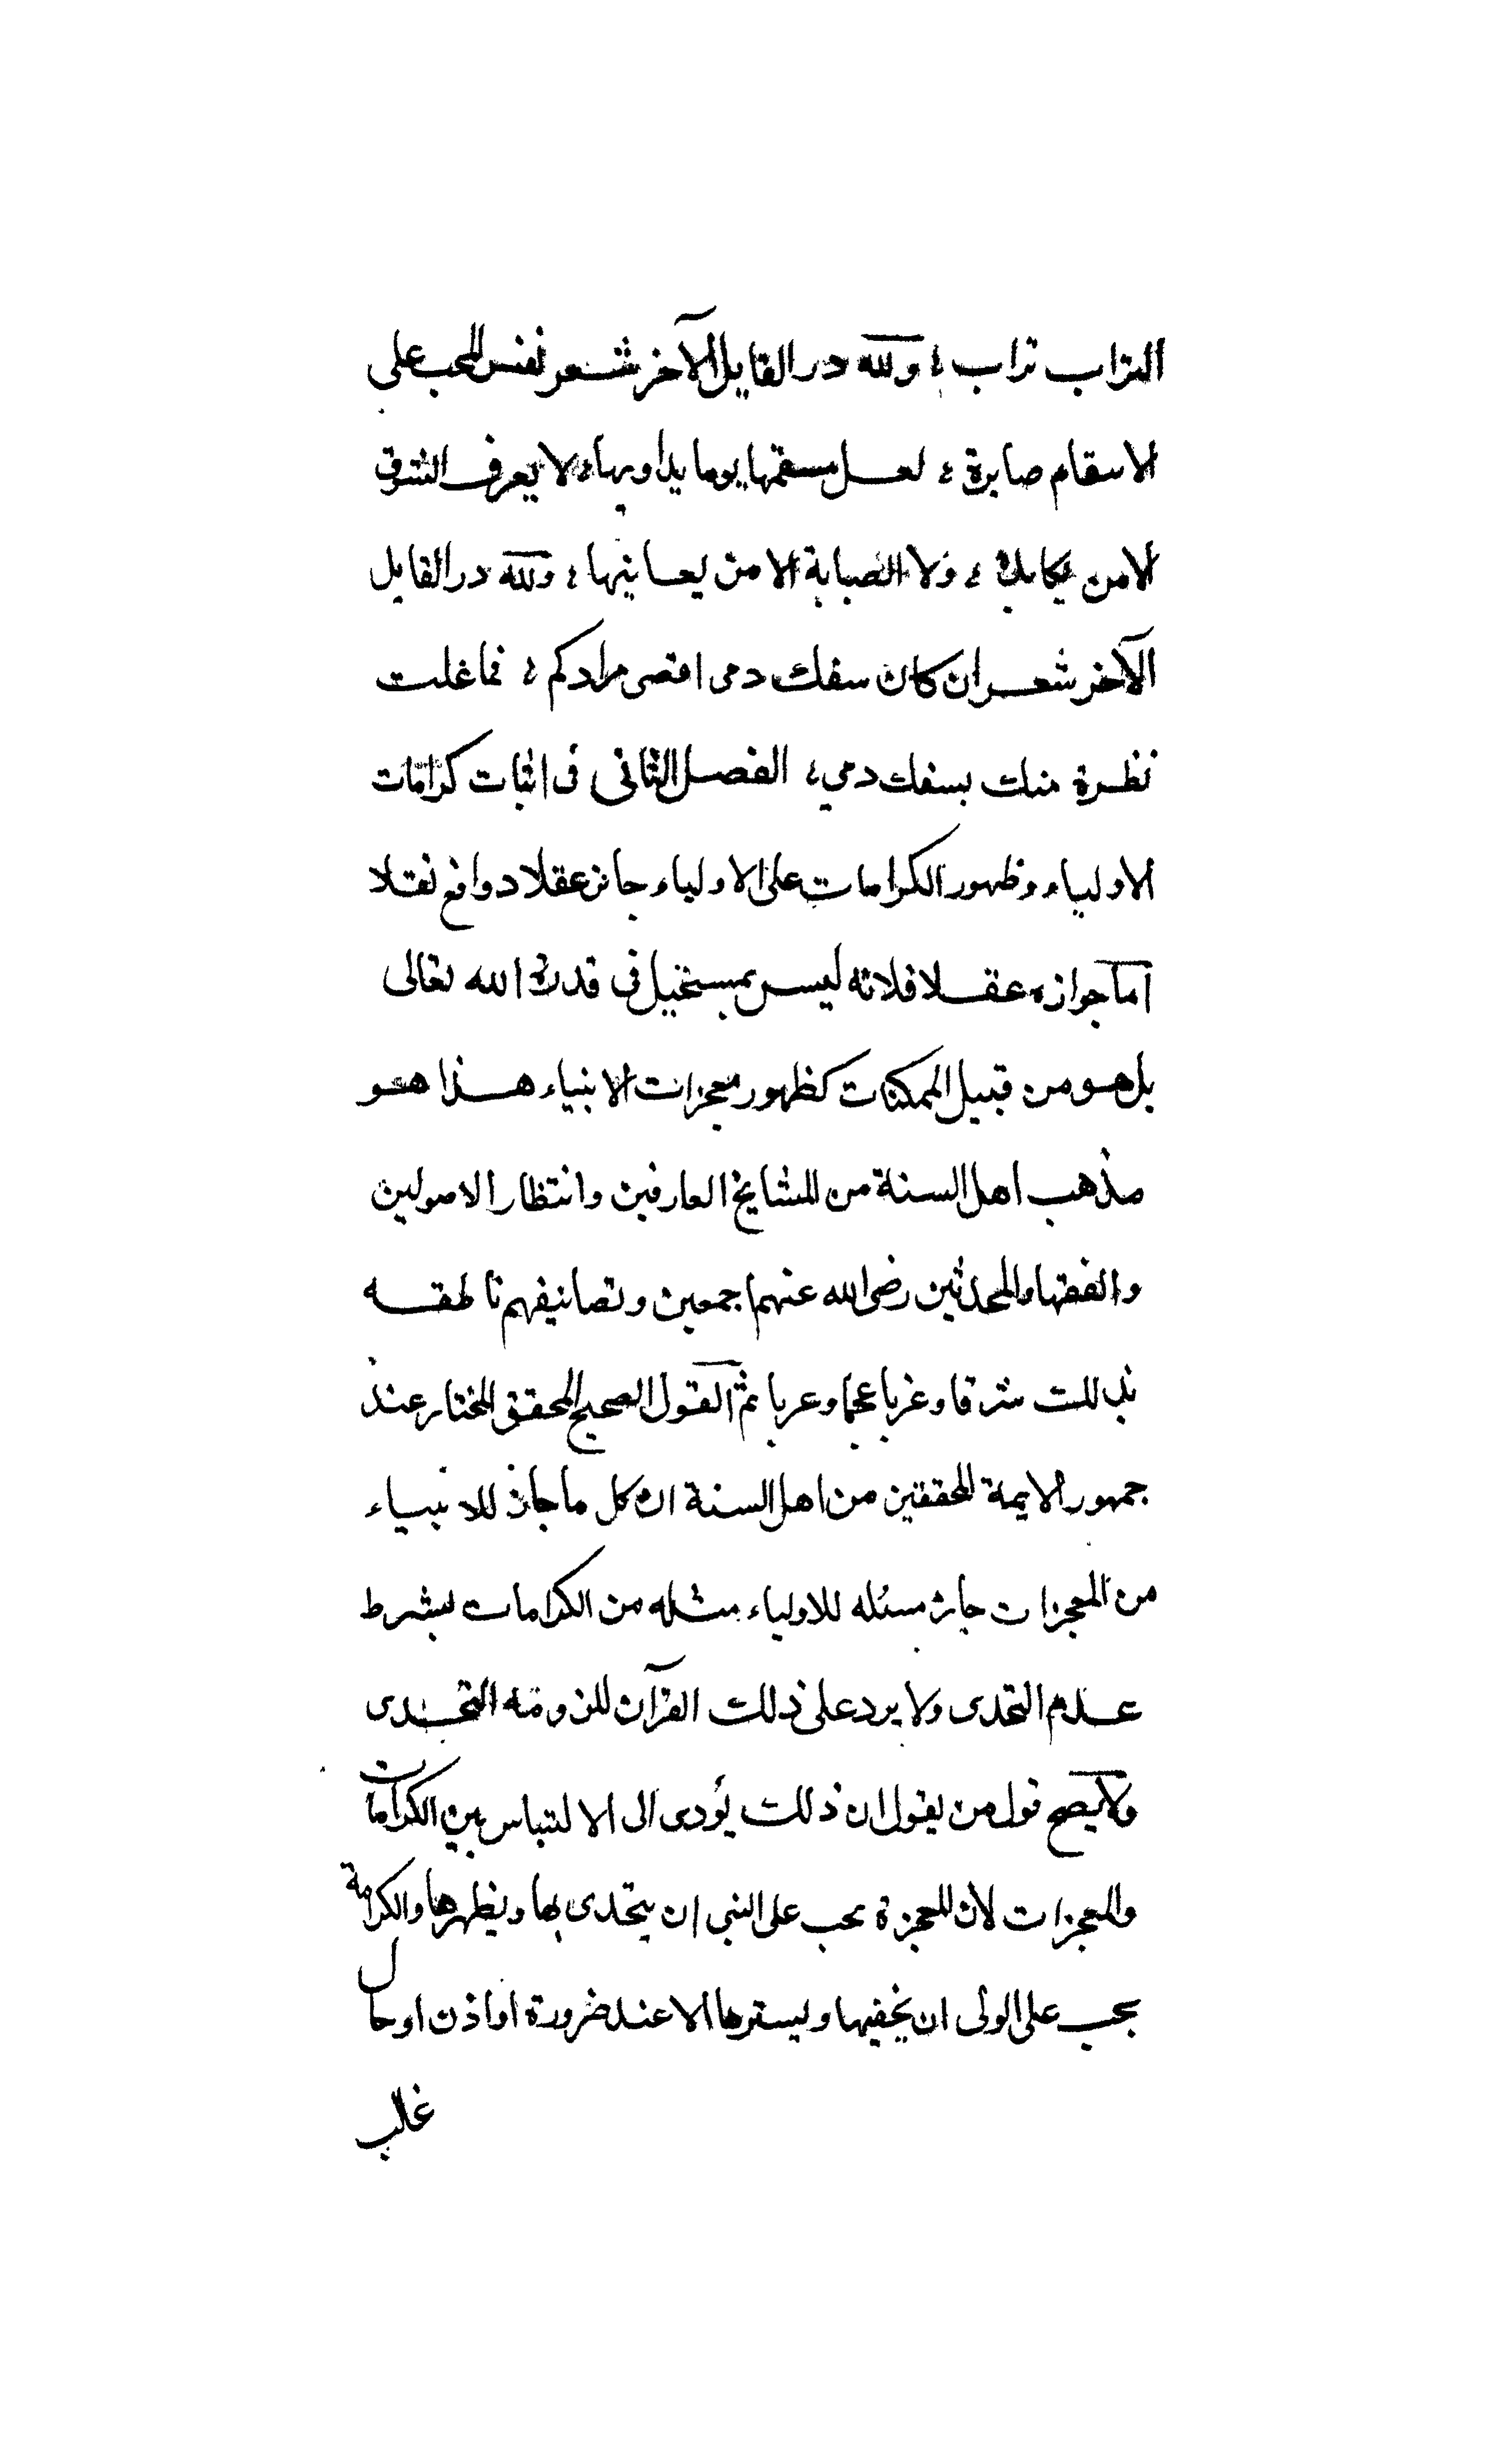 التراب تراب ؛ ولله در القايل الآخر شعر نفس المحب على
الاسقام صابرة ؛ لعل مسقمها يوما يداويها ؛ لا يعرف الشوق
الا من يكابده ؛ ولا الصبابة الا من يعانيها ؛ ولله در القايل
الآخر شعر ان كان سفك دمى اقصى مرادكم ؛ فما غلت
نظرة منك بسفك دمي ؛ الفصل الثانى فى اثبات كرامات
الاولياء وظهور الكرامات على الاولياء جائز عقلا وواقع نقلا
اما جوازه عقلا فلانه ليس بمستحيل فى قدرة الله تعالى
بل هو من قبيل الممكنات كظهور معجزات الانبياء هذا هو
مذهب اهل السنة من المشايخ العارفين وانتظار الاصولين
والفقها والمحدثين رضى الله عنهم اجمعين وتصانيفهم ناطقه
بذلك شرقا وغربا عجما وعربا ثم القول الصحيح المحقق المختار عند
جمهور الايمة المحققين من اهل السنة ان كل ما جاز للانبياء
من المعجزات جاز مسئله للاولياء مثله من الكرامات بشرط
عدم التحدى ولا يرد على ذلك القرآن للزومه التحدى
ولا يصح قول من يقول ان ذلك يؤدى الى الالتباس بين الكرامات
والمعجزات لان المعجزة يجب على النبى ان يتحدى بها ويظهرها والكرامة
يجب على الولى ان يخفيها ويسترها الا عند ضرورة او اذن او حال
غالب